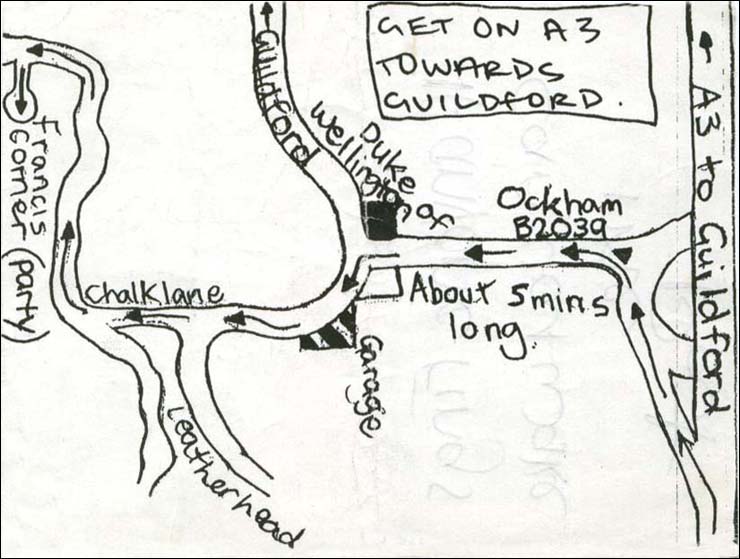 GET ON A3
TOWARDS
GUILDFORD.
←Guildford
Duke
Wellington
Ockham
B2039
About 5mins
long.
← A3 to Guildford
Francis
Corner (party)
Chalklane
Garage
Leatherhead